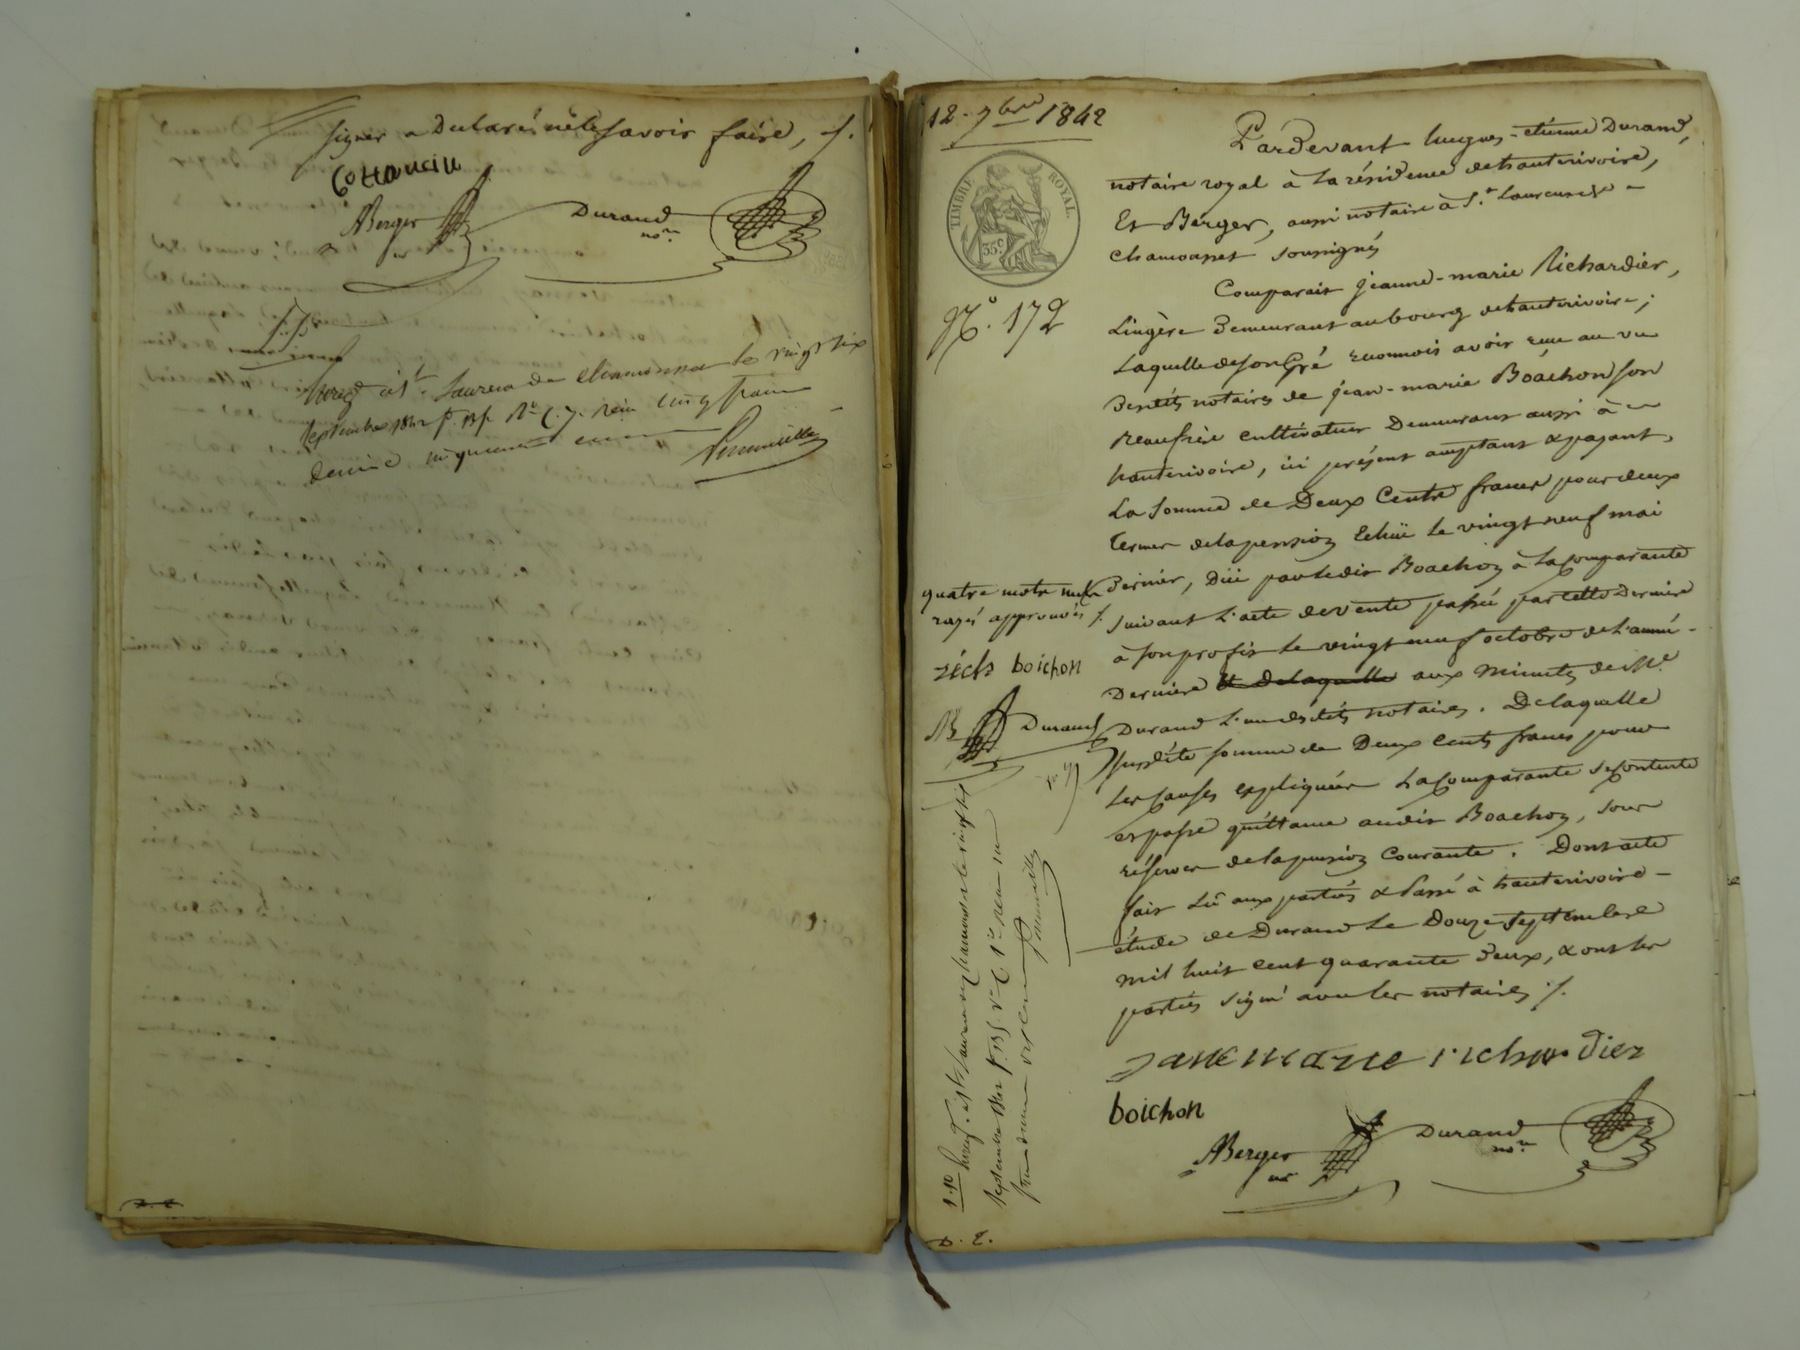 signer a Déclaré ne le savoir faire, /.
Cottancin
ABerger
nre
Durand
nore
Enregé à St. Laurent de Chamousset le vingt six
septembre 1842 fo. 
cinq francs
décime cinquante centimes
12 - 7bre 1842
TIMBRE ROYAL.
35c
No. 172
Pardevant hugues-etienne Durand,
notaire royal à La résidence de hauterivoire,
Et Berger, aussi notaire à St. Laurent de -
chamousset soussignés
Comparait jeanne-marie Richardier,
Lingère demeurant au bourg de hauterivoire;
Laquelle de son Gré reconnois avoir reçu au vu
desdits notaires de jean-marie Boachon son
Beaufrère cultivateur Demeurant aussi à
hauterivoire, ici présent comptant & payant,
La somme de Deux Cents francs pour deux
termes de la pension Echüe le vingt neuf mai
dernier, Düe par ledit Boachon à La comparante
suivant L'acte de vente passée par cette Dernière
à son profit le vingt neuf octobre de L'année -
Derniere Et de laquelle aux Minutes de Me.
Durand L'un desdits notaires. De laquelle
susdite somme de Deux cents francs pour
Les causes expliquées La comparante se contente
et passe quittance audit Boachon, sous
réserves de la pension Courante. Dont acte
fait Lu aux parties & Passé à hauterivoire -
étude de Durand Le Douze septembre
mil huit cent quarante deux, & ont les
parties signé avec les notaires /.
quatre mots nuls
rayés approuvés /.
richr boichon
AB
Durand
1.10
Enregé. à St. Laurent de Chamousset le vingt six
septembre 1842 fo.
jeane marie richardier
boichon
ABerger
nre
Durand
nore
D. E.